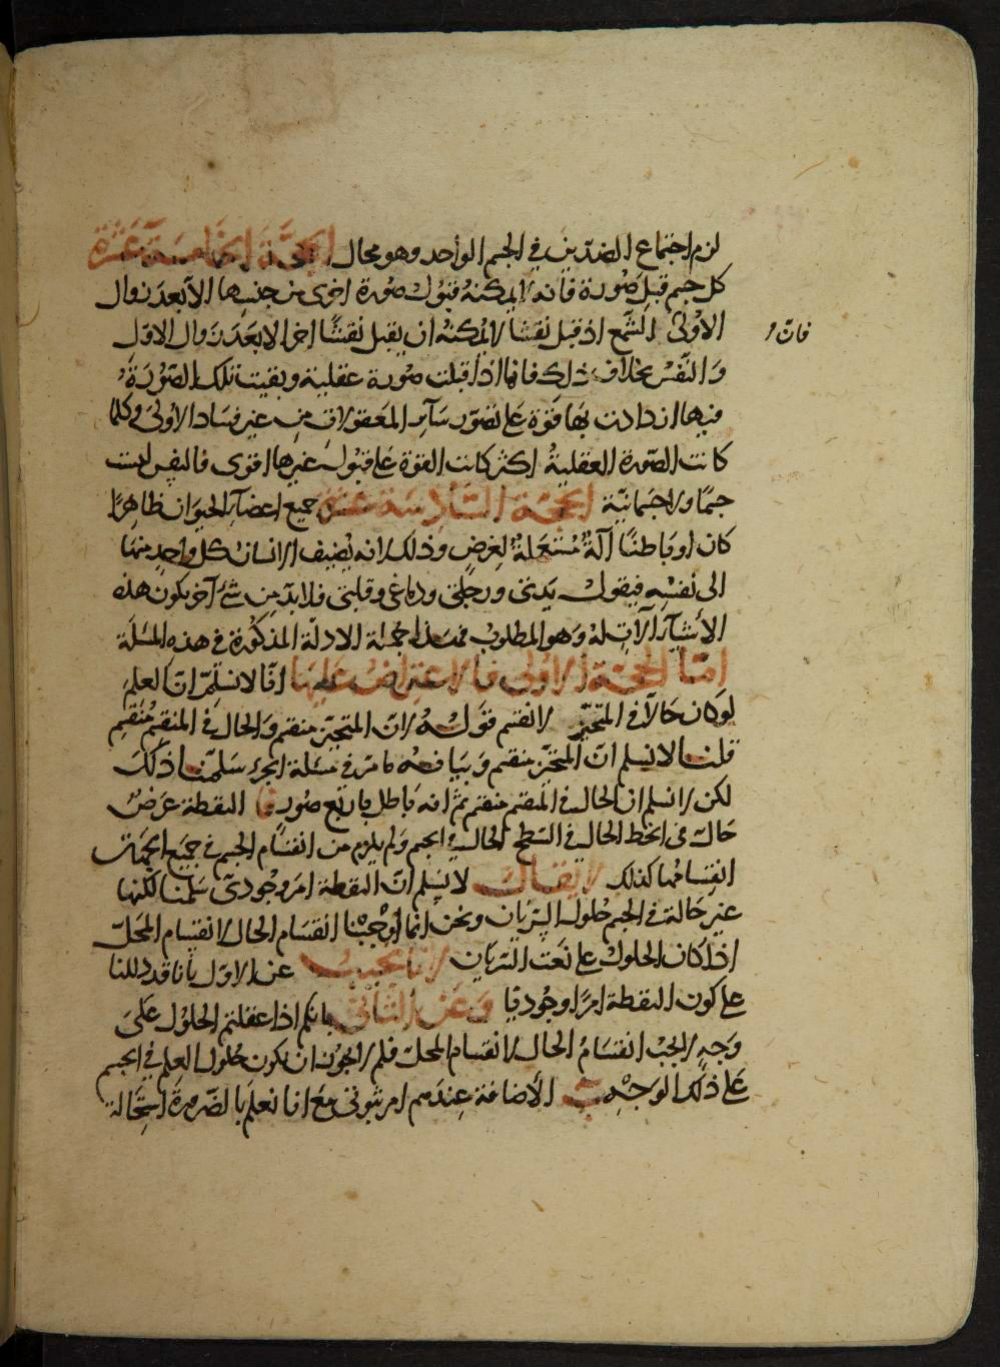 لزم اجتماع الضدين في الجسم الواحد وهو محال الحجة الخامسة عشرة
كل جسم قبل صورة فانه لا يمكنه قبول صورة اخرى من جنسها الا بعد زوال
الاولى الشمع اذ قبل نقشا لا يمكنه ان يقبل نقشًا اخر الا بعد زوال الاول
فان
والنفس بخلاف ذلك فانها اذا قبلت صورة عقلية وبقيت تلك الصّورة
فيها ازدادت بها قوّة على تصوّر سآير المعقولات من غير فساد الاولى وكلما
كانت الصورة العقلية اكثر كانت القوة على قبول غيرها اقوى فالنفس ليست
جسمًا ولا جسمانيّة الحجّة السّادسة عشر جميع اعضآء الحيوان ظاهرًا
كان او باطنًا آلةٌ مستعملةٌ لغرضٍ وذلك لانه يُضيف الانسان كل واحدٍ منها
الى نفسه فيقول يدى ورجلى ودماغى وقلبى فلا بدّ من شئ آخر يكون هذه
الأشيآء آلآتٍ له وهو المطلوب فهذا جملة الادلة المذكورة في هذه المسئلة
امّا الحجّة الاولى فالاعتراض عليها انّا لا نسلّم انّ العلم
لو كان حالّا في المتحيّز لانقسم قوله لانّ المتحيّز منقسم والحال في المنقسم مُنقسم
قلنا لا نسلم انّ المتحيّز منقسم وبيانه ما مر في مسئلة الجزء سلّمنا ذلك
لكن لا نسلم ان الحال في المنقسم منقسم ثم انه باطل باربع صور النقطة عرضٌ
حالّ في الخط الحال في السّطح الحال في الجسم ولم يلزم من انقسام الجسم في جميع الجهات
انقسامُها كذلك لا يقال لا نسلم انّ النقطة امرٌ وجوديّ سلّمنا لكنها
غير حالّة في الجسم حلول السّريان ونحن انما اوجبْنا انقسام الحال لانقسام المحلّ
اذا كان الحلول على نعت السّريان لانا نجيب عن الاول بانا قد دللنا
على كون النقطة امرًا وجوديًّا وعن الثّانى بانكم اذا عقلتم الحلول على
وجهٍ لا يجب انقسامُ الحال لانقسام المحلّ فلم لا يجوز ان يكون حلول العلم في الجسم
على ذلك الوجْهِ ب الأضافة عندهم امر ثبوتى مع انا نعلم بالضّرورة استحالة